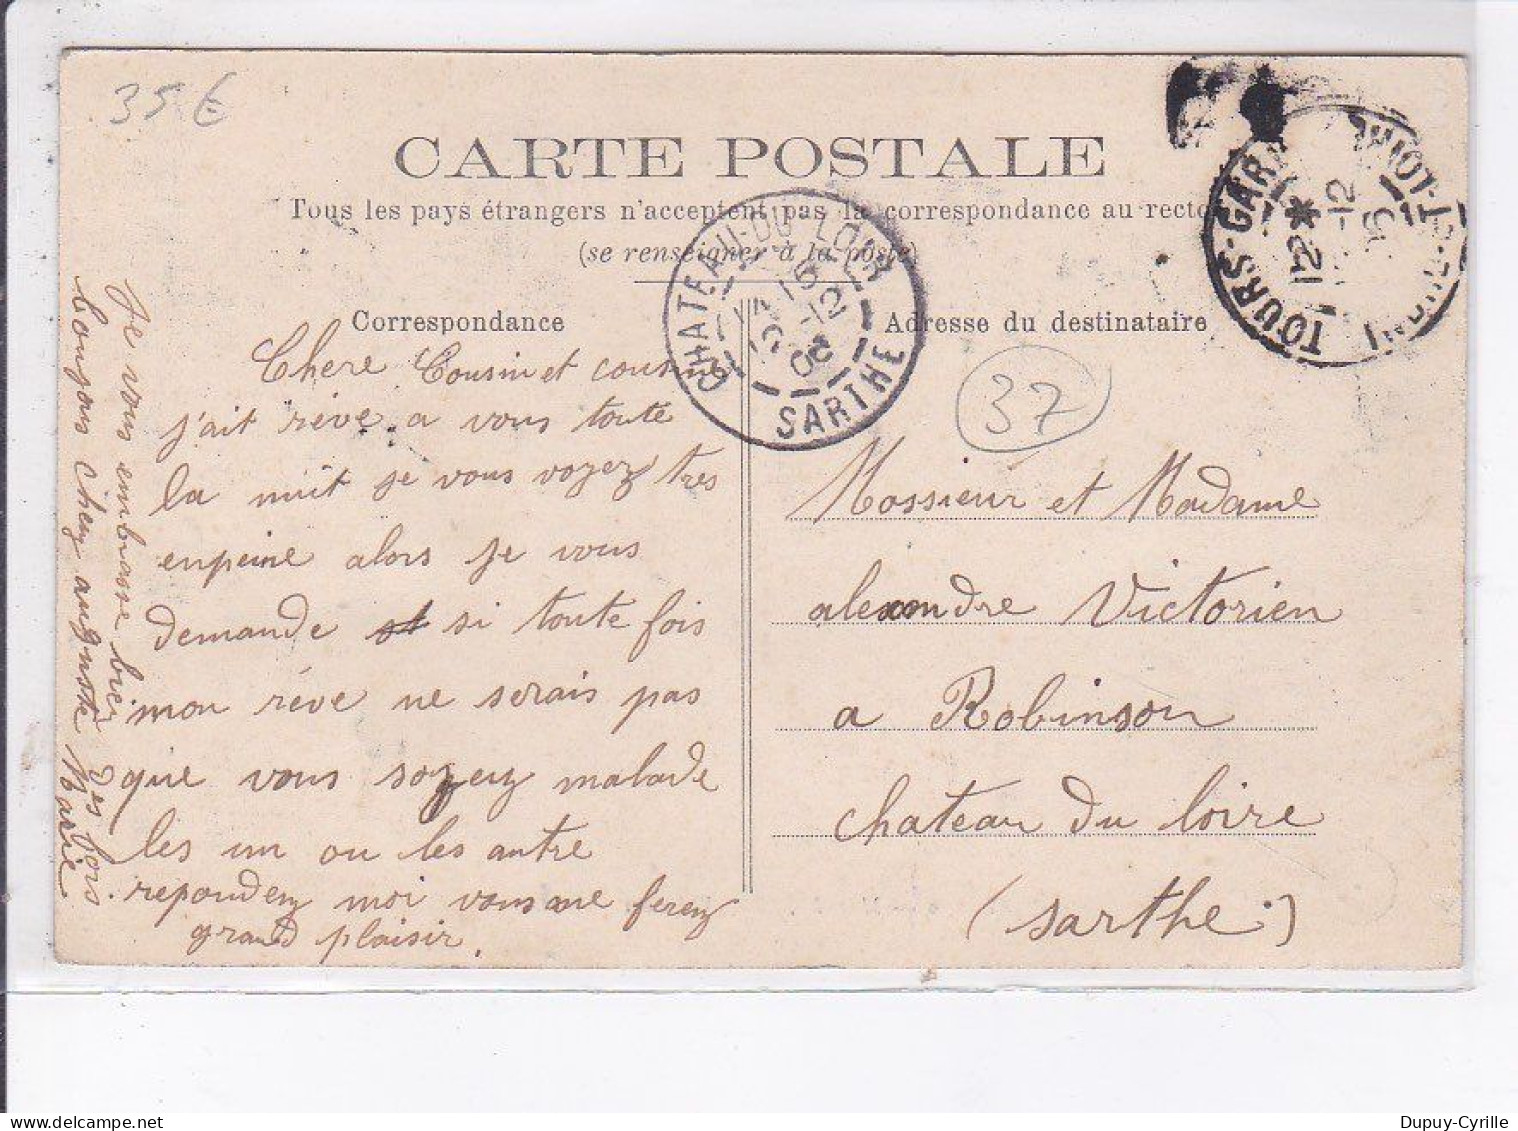 35 €
CARTE POSTALE
Tous les pays étrangers n'acceptent pas la correspondance au recto
(se renseigner à la poste)
Correspondance
Chere Cousin et cousine
j'ait rève a vous toute
la nuit je vous voyez tres
enpeine alors je vous
demande si toute fois
mon rève ne serais pas
que vous soyez malade
les un ou les autre
repondez moi vous me ferez
grand plaisir.
Je vous embrasse bien des fois.
bonjour chez auguste Marie
CHATEAU-DU-LOIR
15
-12
08
SARTHE
TOURS-GARE
12*
-12
INDRE-ET-LOIRE
Adresse du destinataire
37
Mossieur et Madame
alexandre Victorien
a Robinson
chateau du loire
(sarthe)
Dupuy-Cyrille
www.delcampe.net